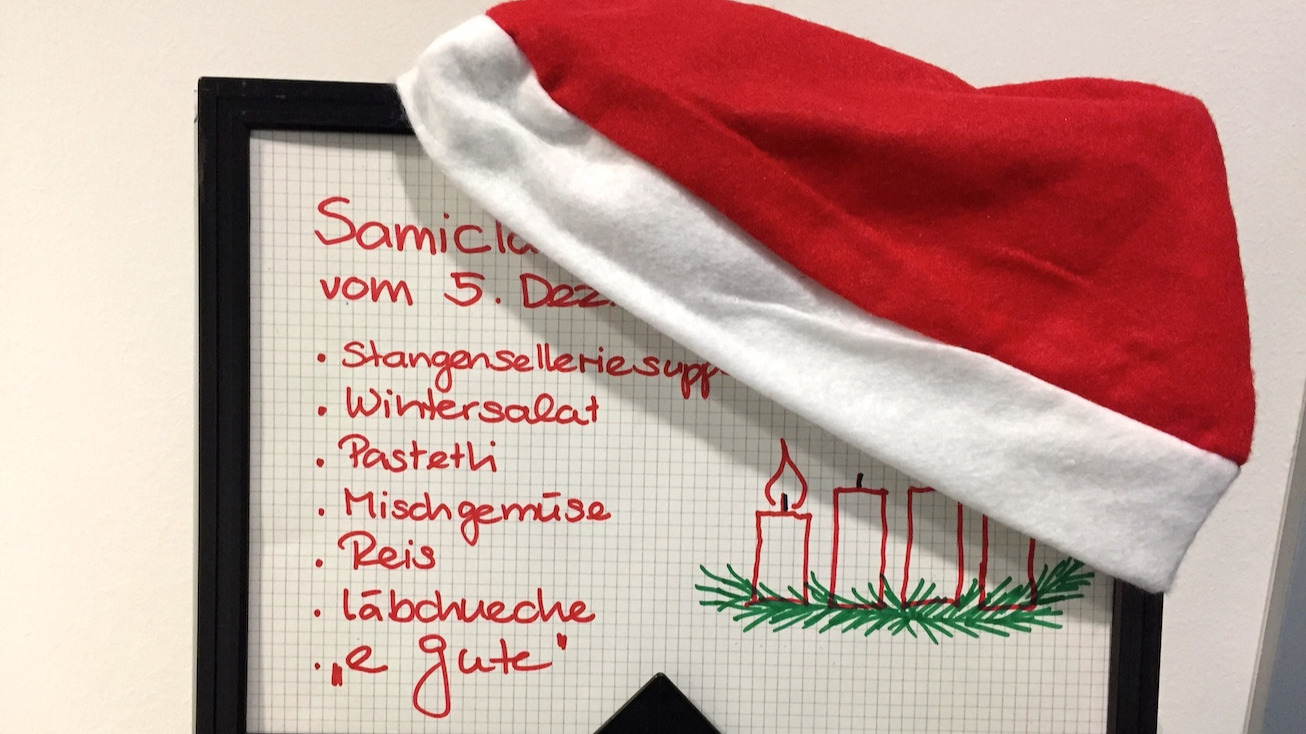 Samicla
vom 5. Dez.
• Stangenselleriesupp
• Wintersalat
• Pastetli
• Mischgemüse
• Reis
• Läbchueche
• „e guete"